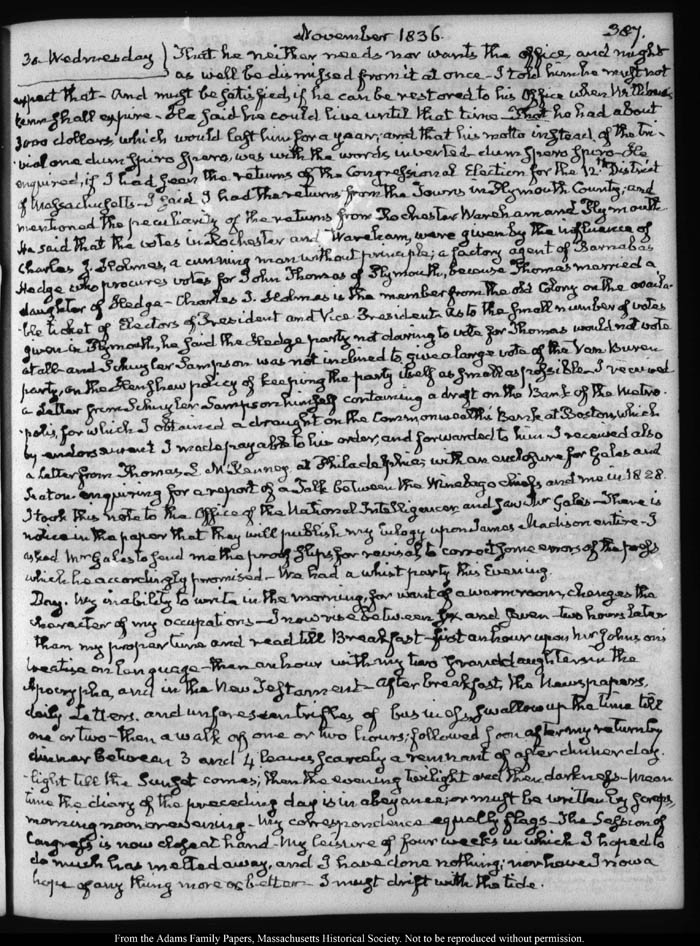 November 1836.
387.
30. Wednesday) That he neither needs nor wants the office, and might
as well be dismissed from it at once - I told him he must not
expect that - And must be satisfied, if he can be restored to his Office when
term shall expire - He said he could live until that time - That he had about
dollars, which would last him for a year, and that his motto instead, of the tri-
vial one dum Spiro Spero, was with the words inverted - dum Spero Spiro - He
enquired, if I had seen the returns of the Congressional Election for the 12th District
of Massachusetts - I said I had the returns from the Towns in Plymouth County; and
mentioned the peculiarity of the returns from Rochester Wareham and Plymouth
He said that the votes in Rochester and Wareham, were given by the influence of
Charles J. Holmes, a cunning man without principle; a factory agent of Barnabas
Hedge who procures votes for John Thomas of Plymouth, because Thomas married a
daughter of Hedge - Charles J. Holmes is the member from the old Colony on the availa-
ble ticket of Electors of President and Vice President. As to the small number of votes
given in Plymouth, he said the Hedge party not daring to vote for Thomas would not vote
at all - and Schuyler Sampson was not inclined to give a large vote of the Van Buren
party, on the Henshaw policy of keeping the party itself as small as possible. I received
a Letter from Schuyler Sampson himself containing a draft on the Bank of the Metro-
polis, for which I obtained a draught on the Commonwealth Bank at Boston, which
by endorsement I made payable to his order, and forwarded to him - I received also
a Letter from Thomas L. McKenney at Philadelphia; with an enclosure for Gales and
Seaton enquiring for a report of a Talk between the Winebago chiefs and me in 1828.
I took this note to the Office of the National Intelligencer and saw Mr Gales - There is
notice in the paper that they will publish my Eulogy upon James Madison entire - I
asked Mr Gales to send me the proof slips for revisal to correct some errors of the press
which he accordingly promised - We had a whist party this Evening.
Day. My inability to write in the morning, for want of a warm room, changes the
character of my occupations - I now rise between six and seven - two hours later
than my proper time and read till Breakfast - first an hour upon Mr Johnson's
treatise on Language - then an hour with my two Granddaughters in the
Apocrypha, and in the New Testament - After breakfast, the Newspapers,
daily Letters, and unforeseen trifles of business, swallow up the time till
one or two - then a walk of one or two hours; followed soon after my return by
dinner between 3 and 4 leaves scarcely a remnant of after dinner day-
light till the Sunset comes; then the evening twilight and then darkness - Mean
time the diary of the preceding day is in abeyance; or must be written by scraps,
morning noon or evening - My correspondence equally flags - The Session of
Congress is now close at hand - My leisure of four weeks in which I hoped to
do much has melted away, and I have done nothing; nor have I now a
hope of any thing more or better - I must drift with the tide.
From the Adams Family Papers, Massachusetts Historical Society. Not to be reproduced without permission.